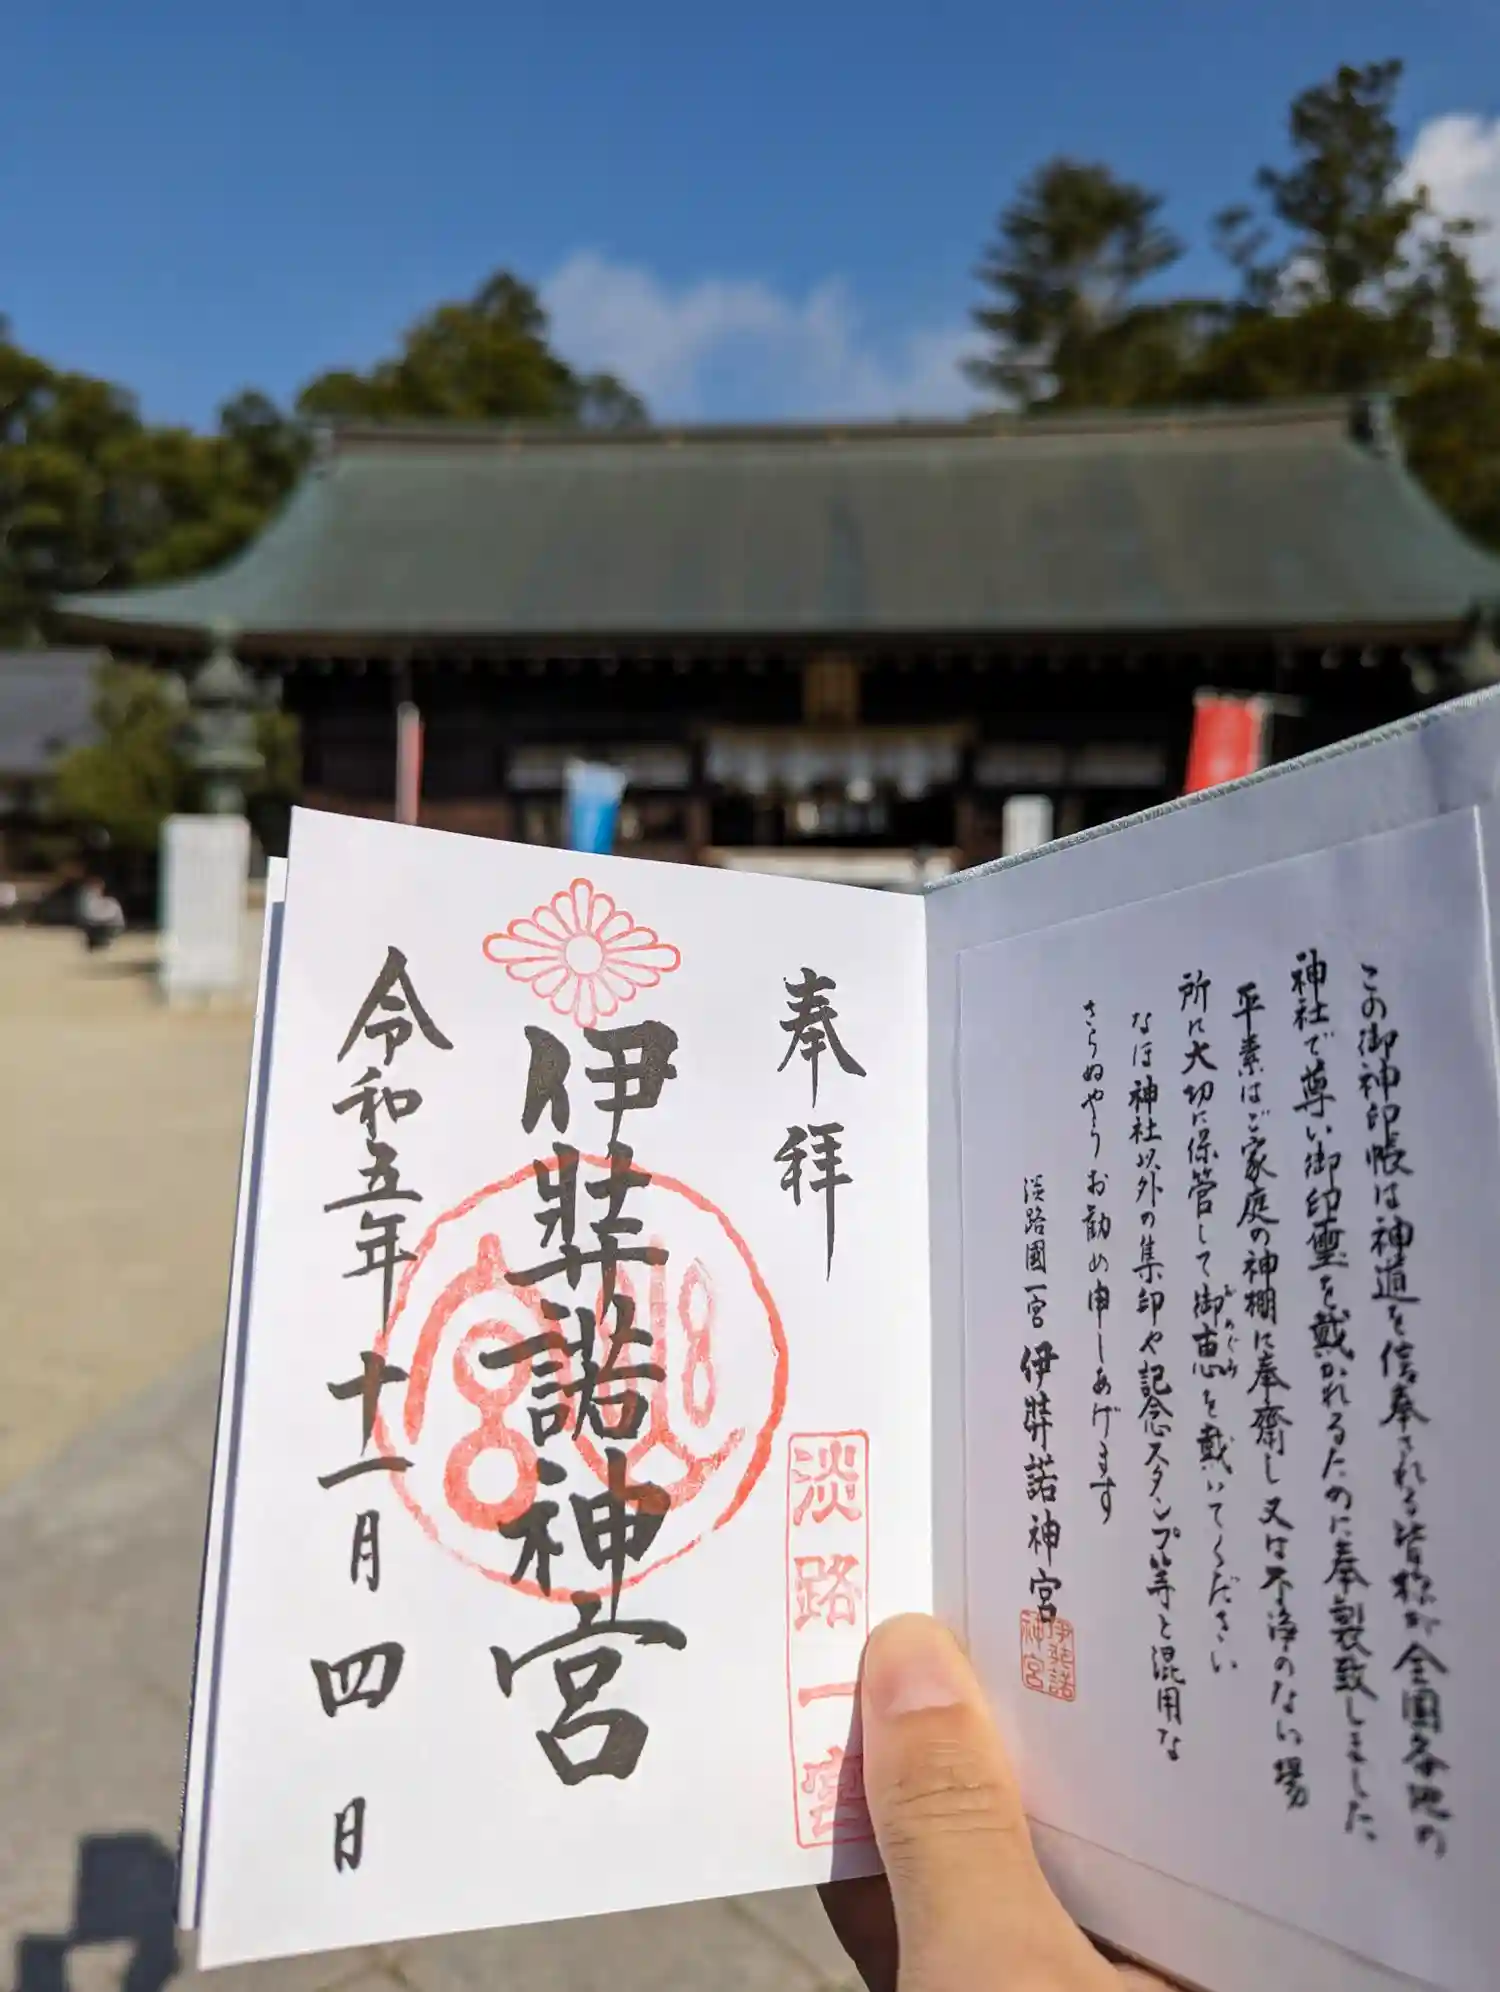 この御神印帳は神道を信奉される皆様が全国各地の
神社で尊い御印璽を戴かれるために奉製致しました、
平素はご家庭の神棚に奉齋し又は不浄のない場
所に大切に保管して御恵を戴いてください
めぐみ
なほ神社以外の集印や記念スタンプ等と混用な
さらぬやうお勧め申しあげます
淡路國一宮 伊弉諾神宮
伊弉諾
神宮
奉拝
淡路一宮
伊弉諾神宮
令和五年十一月四日